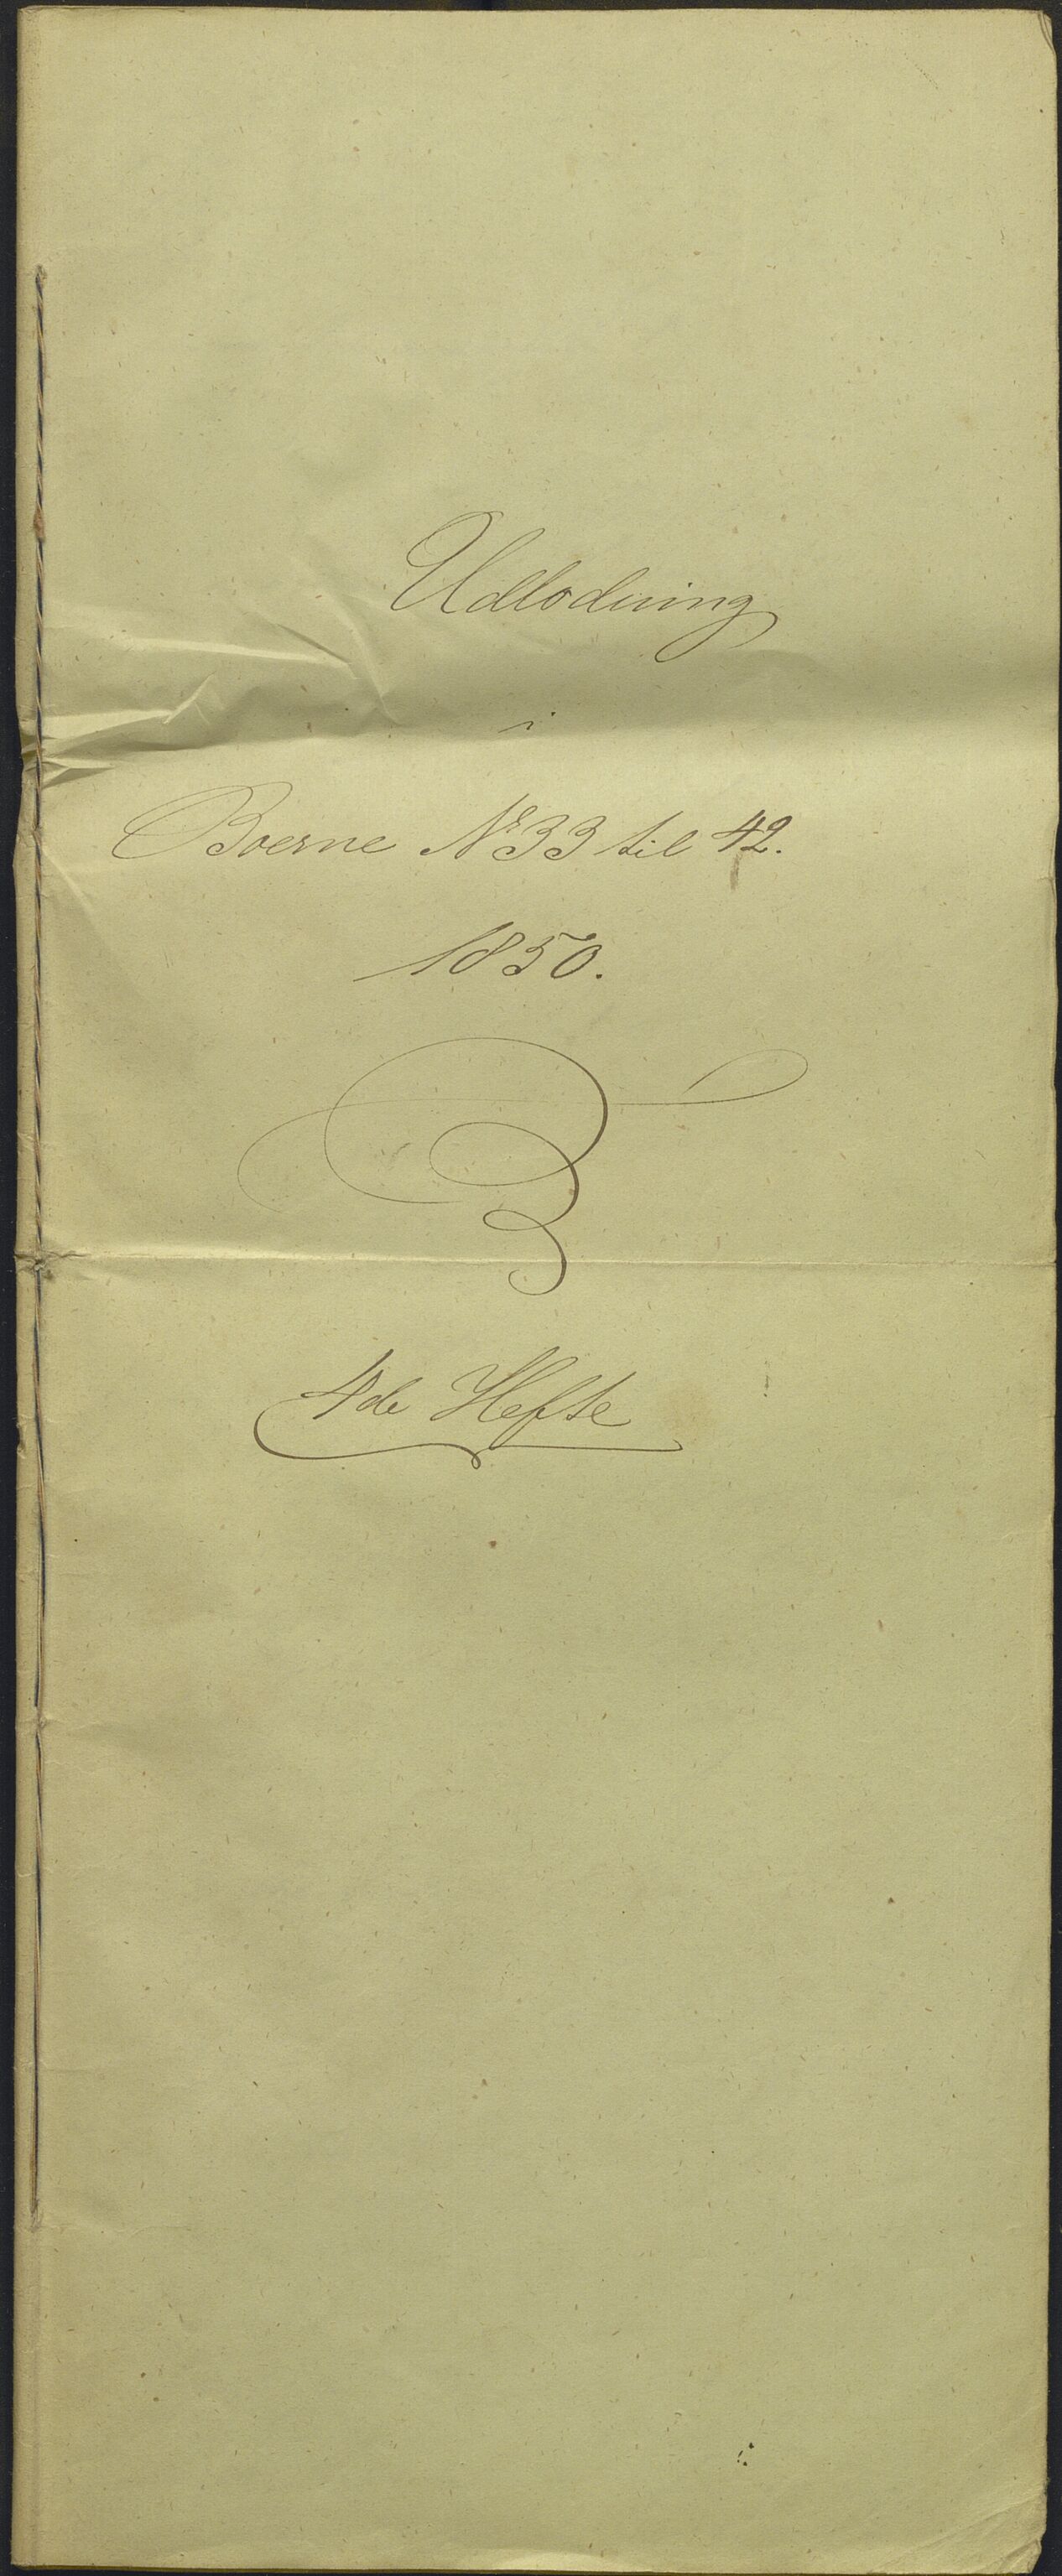 Udlodning
i
Boerne No 33 til 42.
1850.
4de Hefte